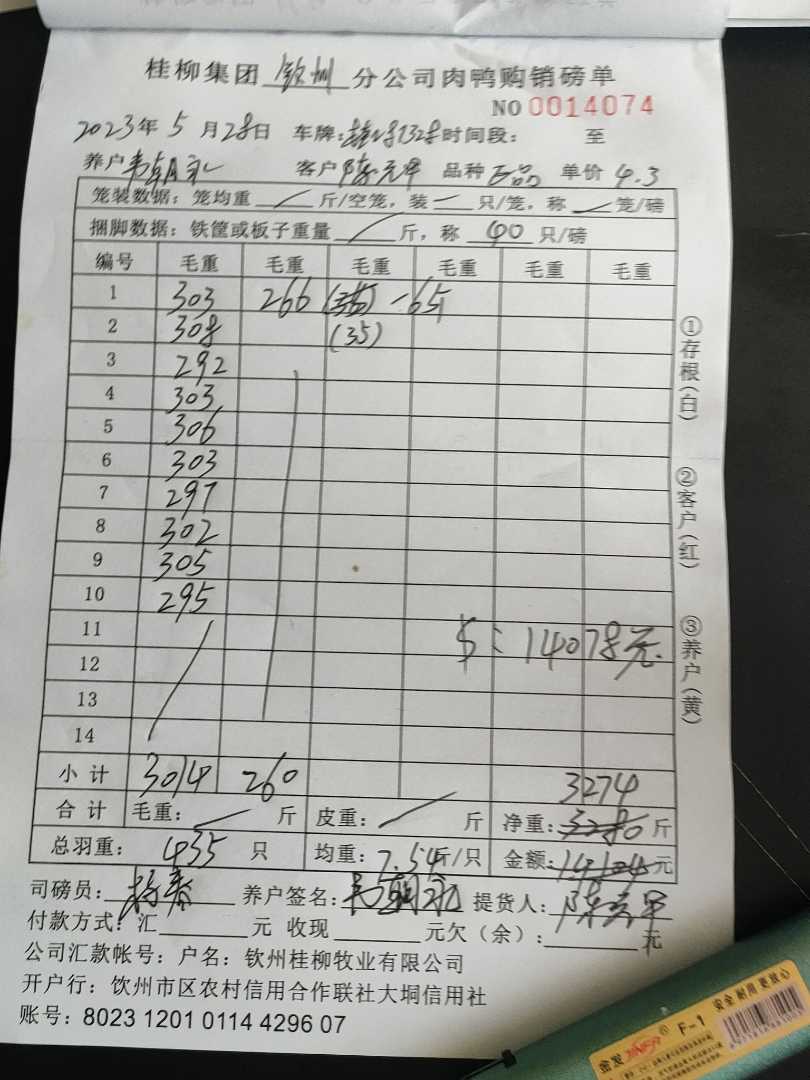 桂柳集团 钦州 分公司肉鸭购销磅单
NO 0014074
2023年 5 月 28日 车牌: 时间段: 至
养户 客户 陈元早 品种 单价 4.3
笼装数据: 笼均重 斤/空笼, 装 只/笼, 称 笼/磅
捆脚数据: 铁筐或板子重量 斤, 称 40 只/磅
编号 毛重 毛重 毛重 毛重 毛重 毛重
1 303 266 -65
2 308 (35)
3 292
4 303
5 306
6 303
7 297
8 302
9 305
10 295
11 $: 14078元
12
13
14
小计 3014 260 3274
合计 毛重: 斤 皮重: 斤 净重: 3280 斤
总羽重: 435 只 均重: 7.54斤/只 金额: 14104元
司磅员: 杨春 养户签名: 提货人:
付款方式: 汇 元 收现 元欠(余): 元
公司汇款帐号: 户名: 钦州桂柳牧业有限公司
开户行: 饮州市区农村信用合作联社大垌信用社
账号: 8023 1201 0114 4296 07
①存根(白)
②客户(红)
③养户(黄)
金发 JINFA ® F-1 安全耐用更放心